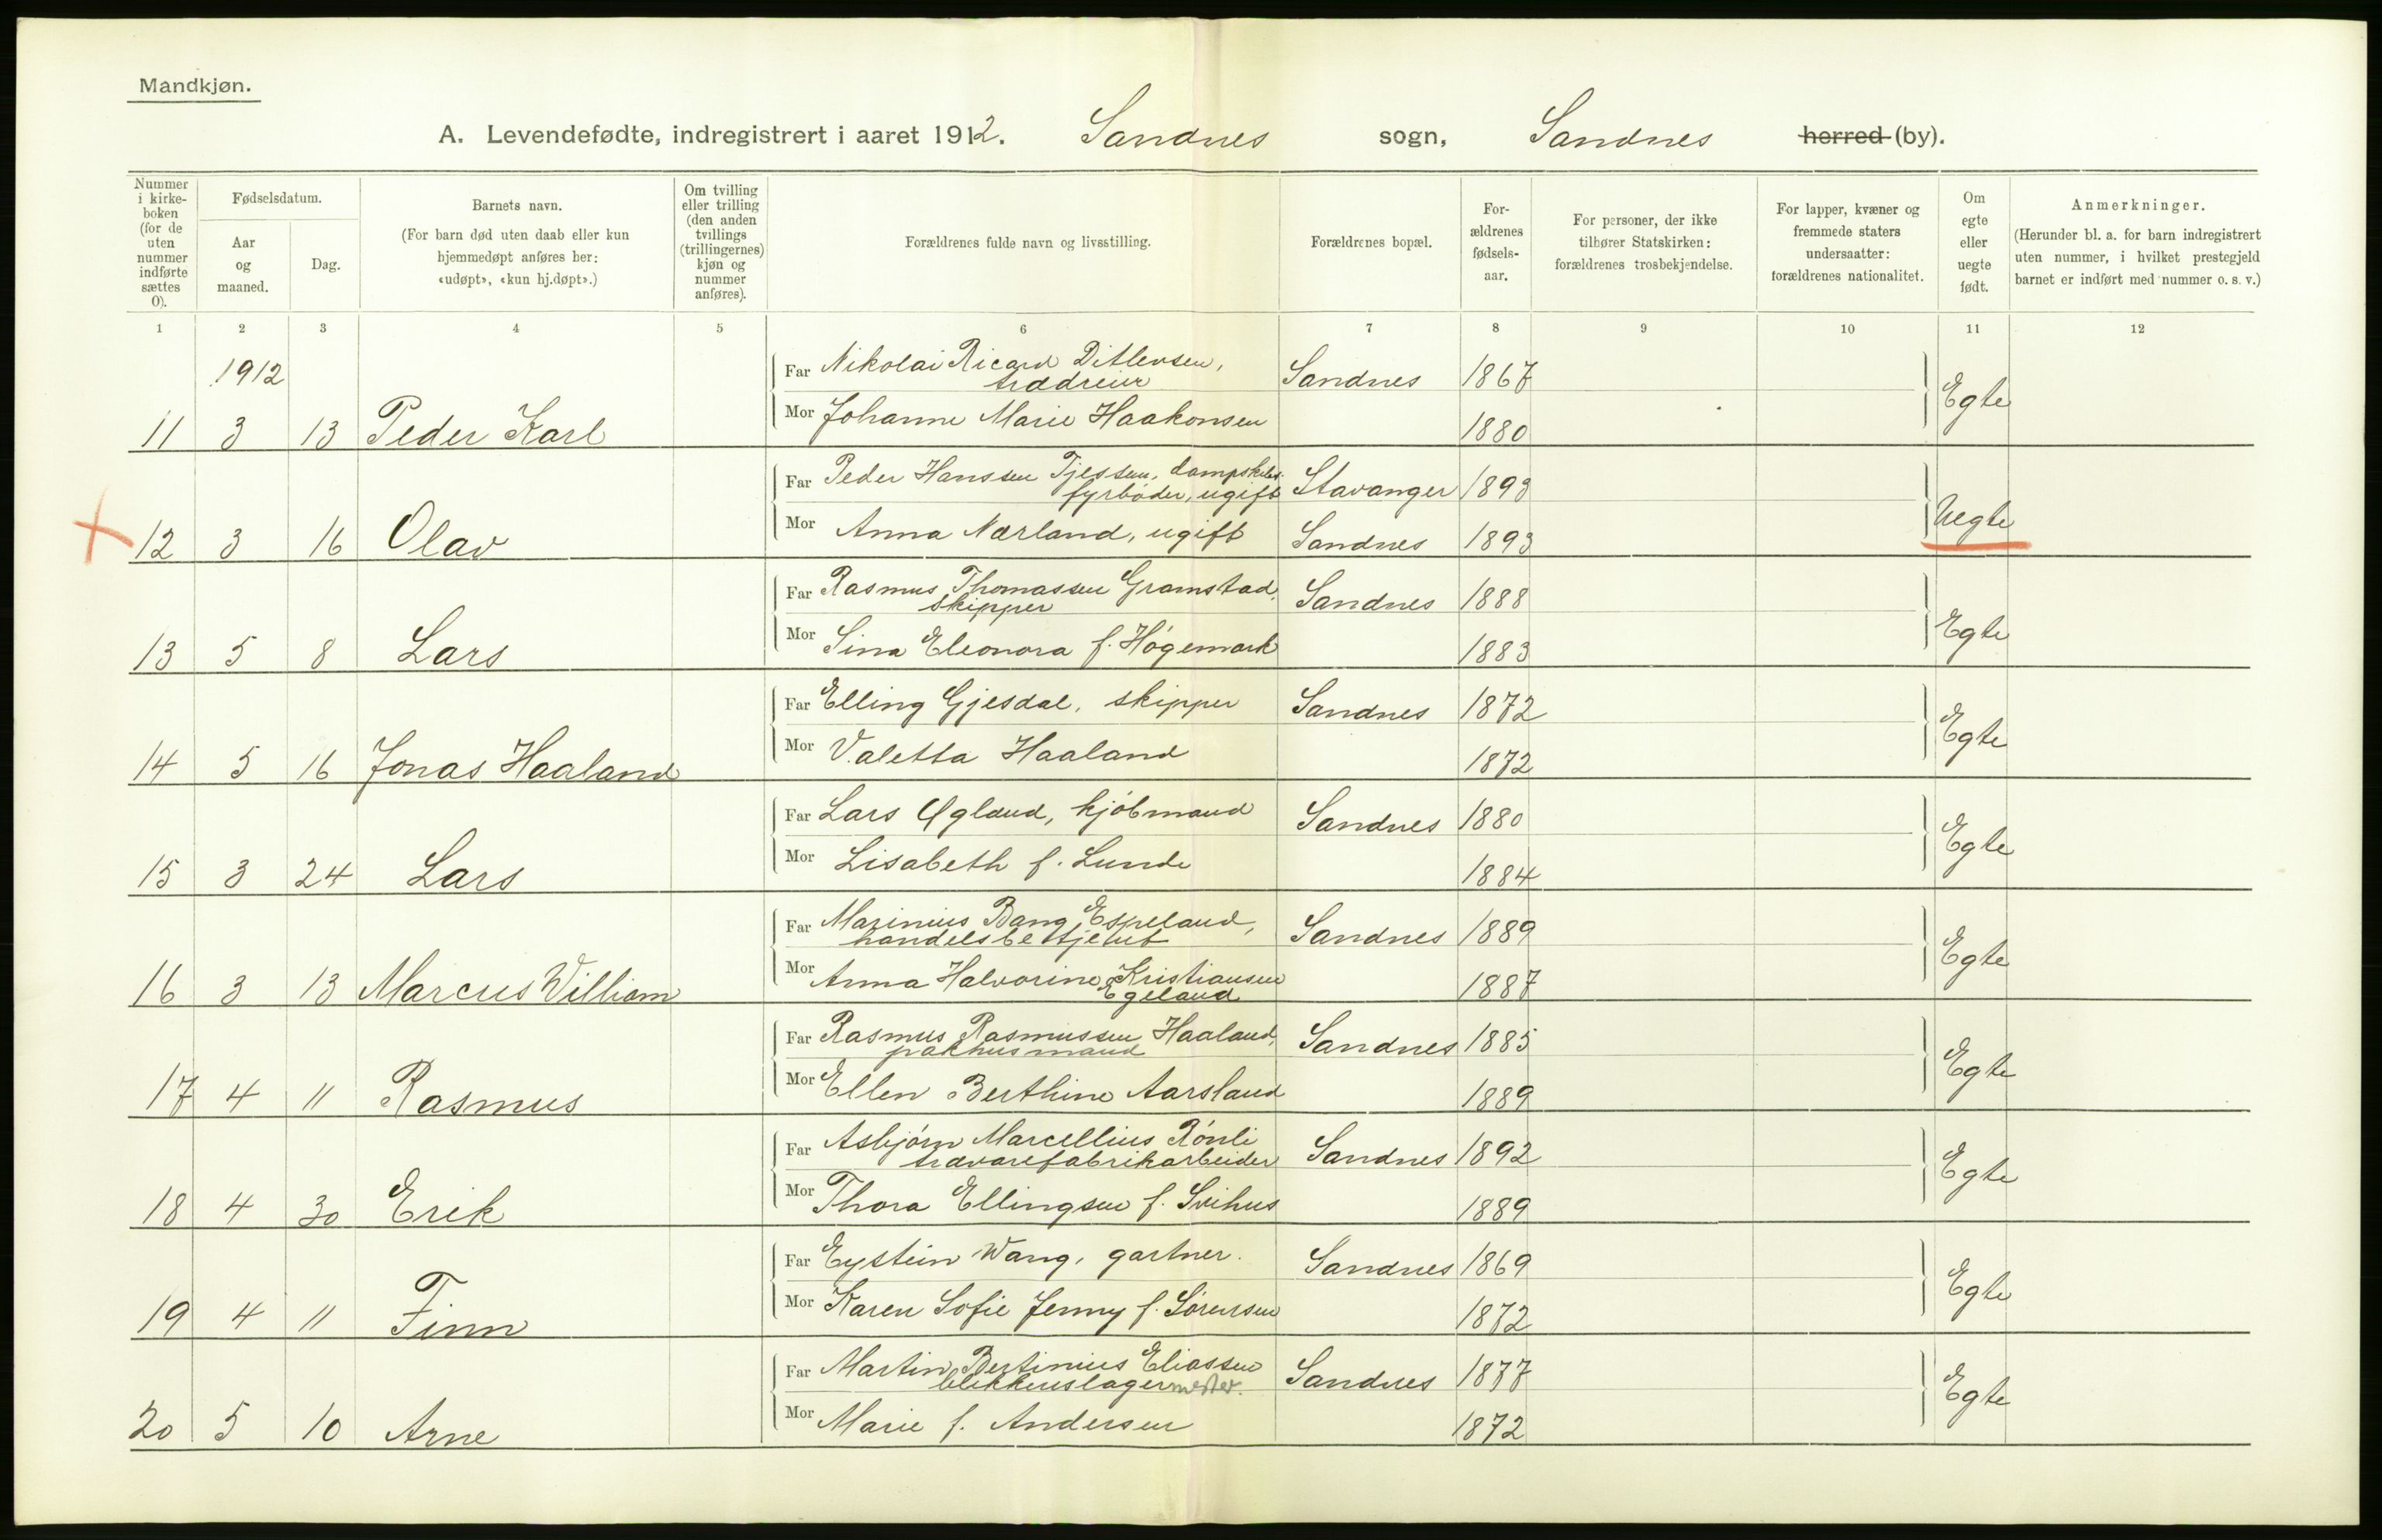 Mandkjøn.
A. Levendefødte, indregistrert i aaret 1912. Sandnes sogn, Sandnes herred (by).
Nummer i kirkeboken (for de uten nummer indførte sættes 0).
Fødselsdatum.
Aar og maaned.
Dag.
Barnets navn.
(For barn død uten daab eller kun hjemmedøpt anføres her: «udøpt», «kun hj.døpt».)
Om tvilling eller trilling (den anden tvillings (trillingernes) kjøn og nummer anføres).
Forældrenes fulde navn og livsstilling.
Forældrenes bopæl.
Forældrenes fødselsaar.
For personer, der ikke tilhører Statskirken: forældrenes trosbekjendelse.
For lapper, kvæner og fremmede staters undersaatter: forældrenes nationalitet.
Om egte eller uegte født.
Anmerkninger.
(Herunder bl. a. for barn indregistrert uten nummer, i hvilket prestegjeld barnet er indført med nummer o. s. v.)
1 2 3 4 5 6 7 8 9 10 11 12
1912
Far Nikolai Ricard Ditlevsen, Sandnes 1867
trædreier
11 3 13 Peder Karl Mor Johanne Marie Haakonsen 1880 Egte
Far Peder Hanssen Tjessem, dampskibs- Stavanger 1893
fyrbøder, ugift
12 3 16 Olav Mor Anna Nærland, ugift Sandnes 1893 Uegte
Far Rasmus Thomassen Gramstad, Sandnes 1888
skipper
13 5 8 Lars Mor Sina Eleonora f. Høgemark 1883 Egte
Far Elling Gjesdal, skipper Sandnes 1872
14 5 16 Jonas Haaland Mor Valetta Haaland 1872 Egte
Far Lars Øgland, kjøbmand Sandnes 1880
15 3 24 Lars Mor Lisabeth f. Lunde 1884 Egte
Far Marinius Bang Espeland, Sandnes 1889
handelsbetjent
16 3 13 Marcus William Mor Anna Halvorine Kristiansen 1887 Egte
Egeland
Far Rasmus Rasmussen Haaland, Sandnes 1885
pakhusmand
17 4 11 Rasmus Mor Ellen Berthine Aarsland 1889 Egte
Far Asbjørn Marcellius Rønli Sandnes 1892
trævarefabrikarbeider
18 4 30 Erik Mor Thora Ellingsen f. Svihus 1889 Egte
Far Eystein Wang, gartner. Sandnes 1869
19 4 11 Finn Mor Karen Sofie Jenny f. Sørensen 1872 Egte
Far Martin Bertinius Eliassen Sandnes 1877
blikkenslagermester.
20 5 10 Arne Mor Marie f. Andersen 1872 Egte